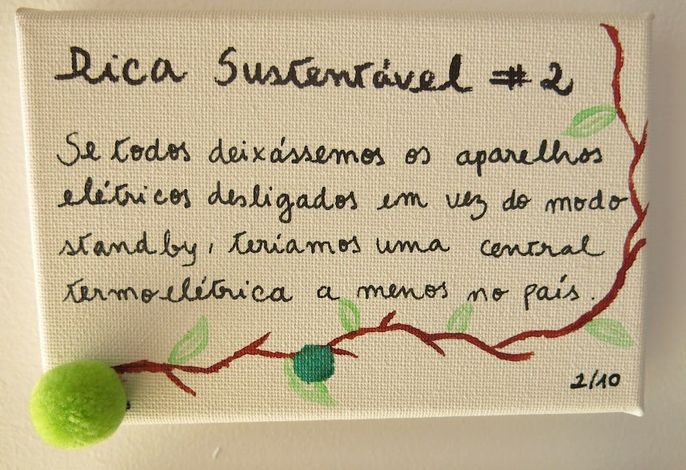 Dica Sustentável #2
Se todos deixássemos os aparelhos
elétricos desligados em vez do modo
standby, teríamos uma central
termoelétrica a menos no país.
2/10